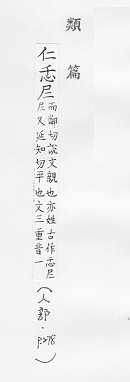 類篇
仁忎𡰥
而鄰切說文親也亦姓古作忎𡰥
𡰥又延知切平也文三重音一
(人部·p278)